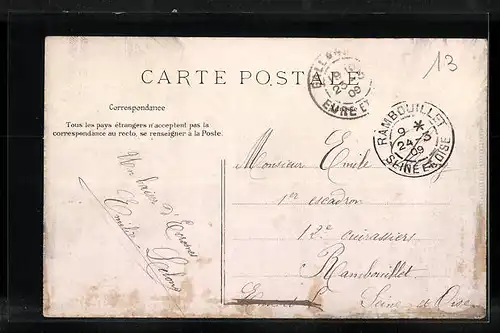 13
CARTE POSTALE
EURE ET
RAMBOUILLET
9 *
24 - 9
09
SEINE ET OISE
Correspondance
Tous les pays étrangers n'acceptent pas la
correspondance au recto, se renseigner à la Poste.
Un baiser d'
Emile
Monsieur Emile
1er escadron
12e cuirassiers
Rambouillet
Seine et Oise